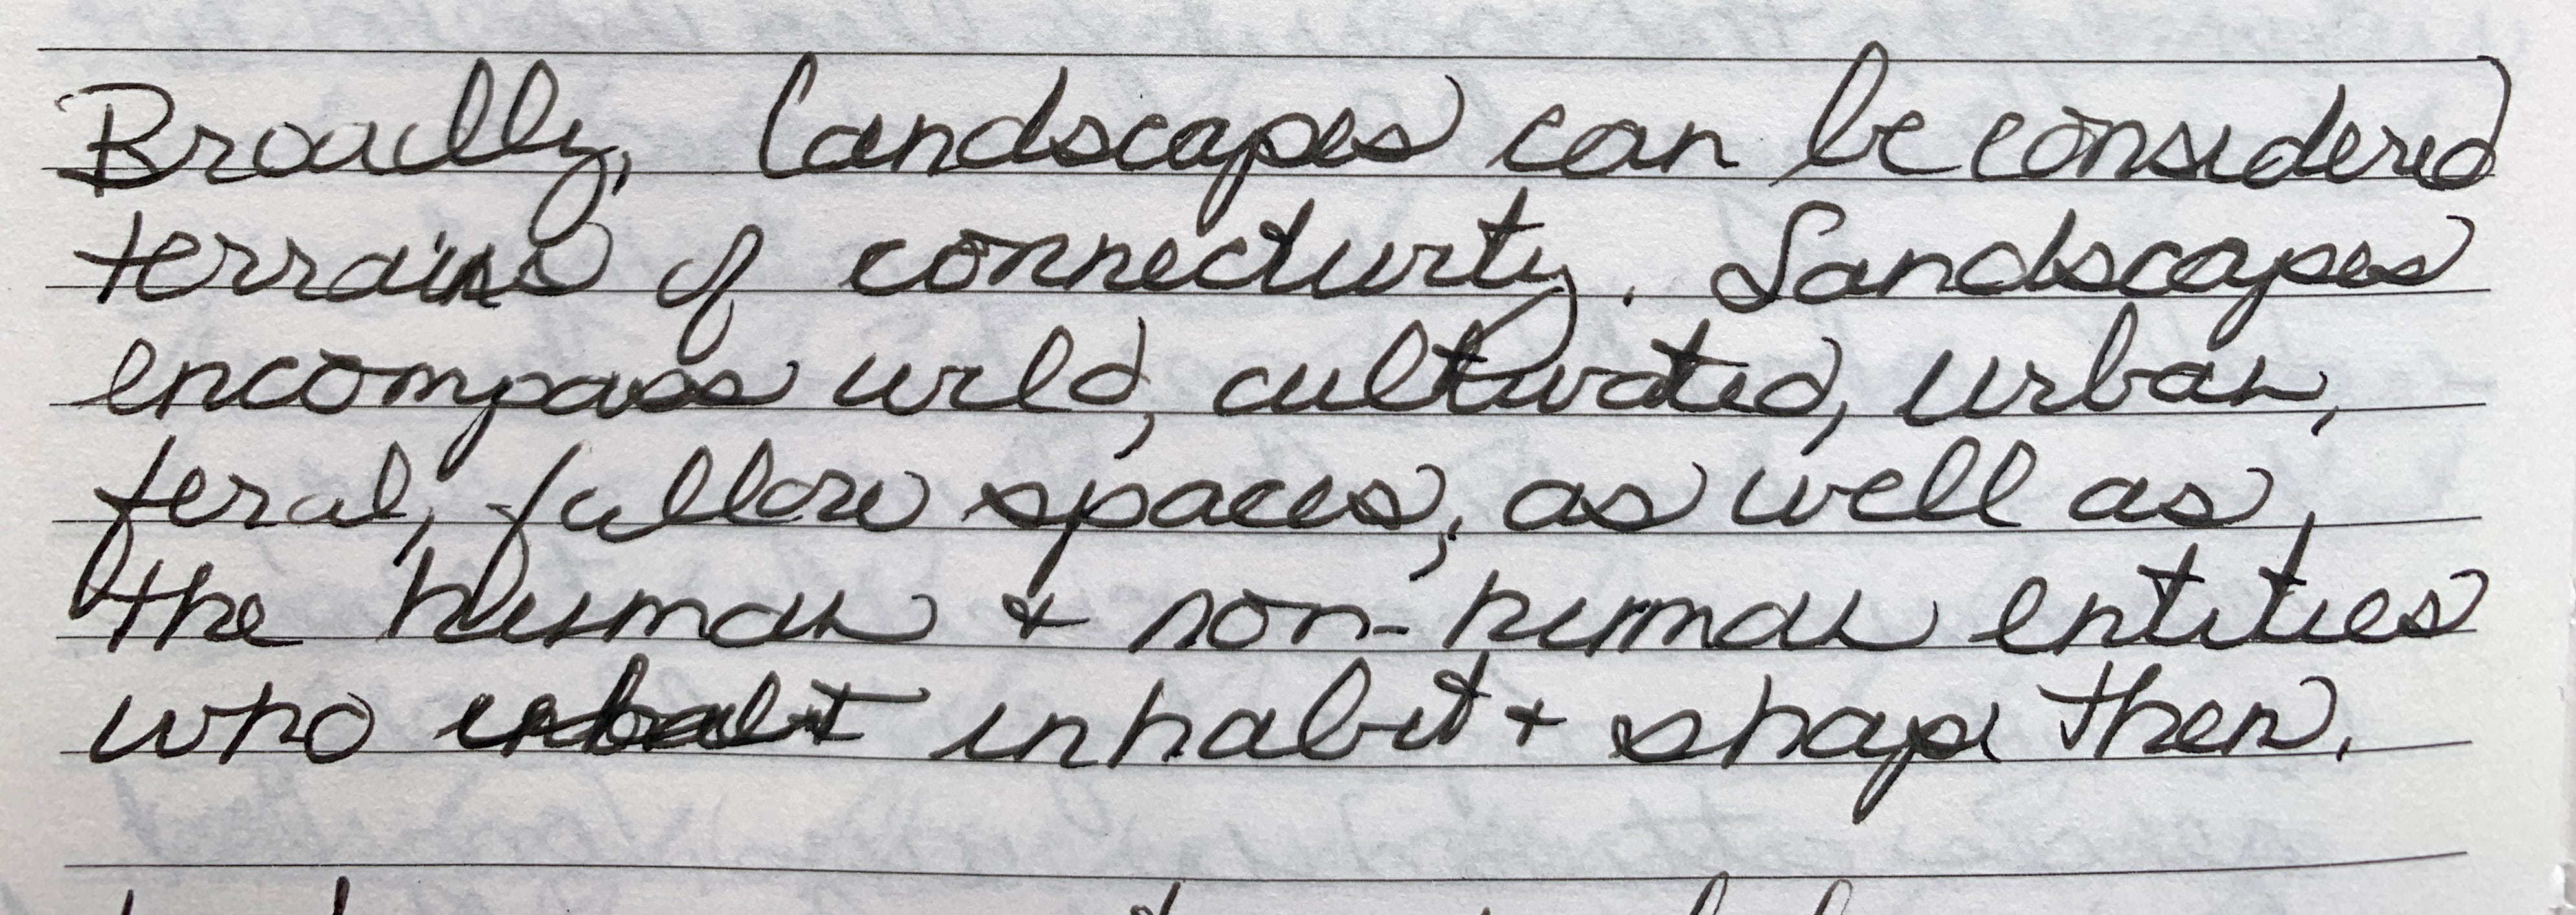 Broadly, landscapes can be considered
terrains of connectivity. Landscapes
encompass wild, cultivated, urban,
feral, fallow spaces, as well as
the human + non-human entities
who inhabit + shape them.